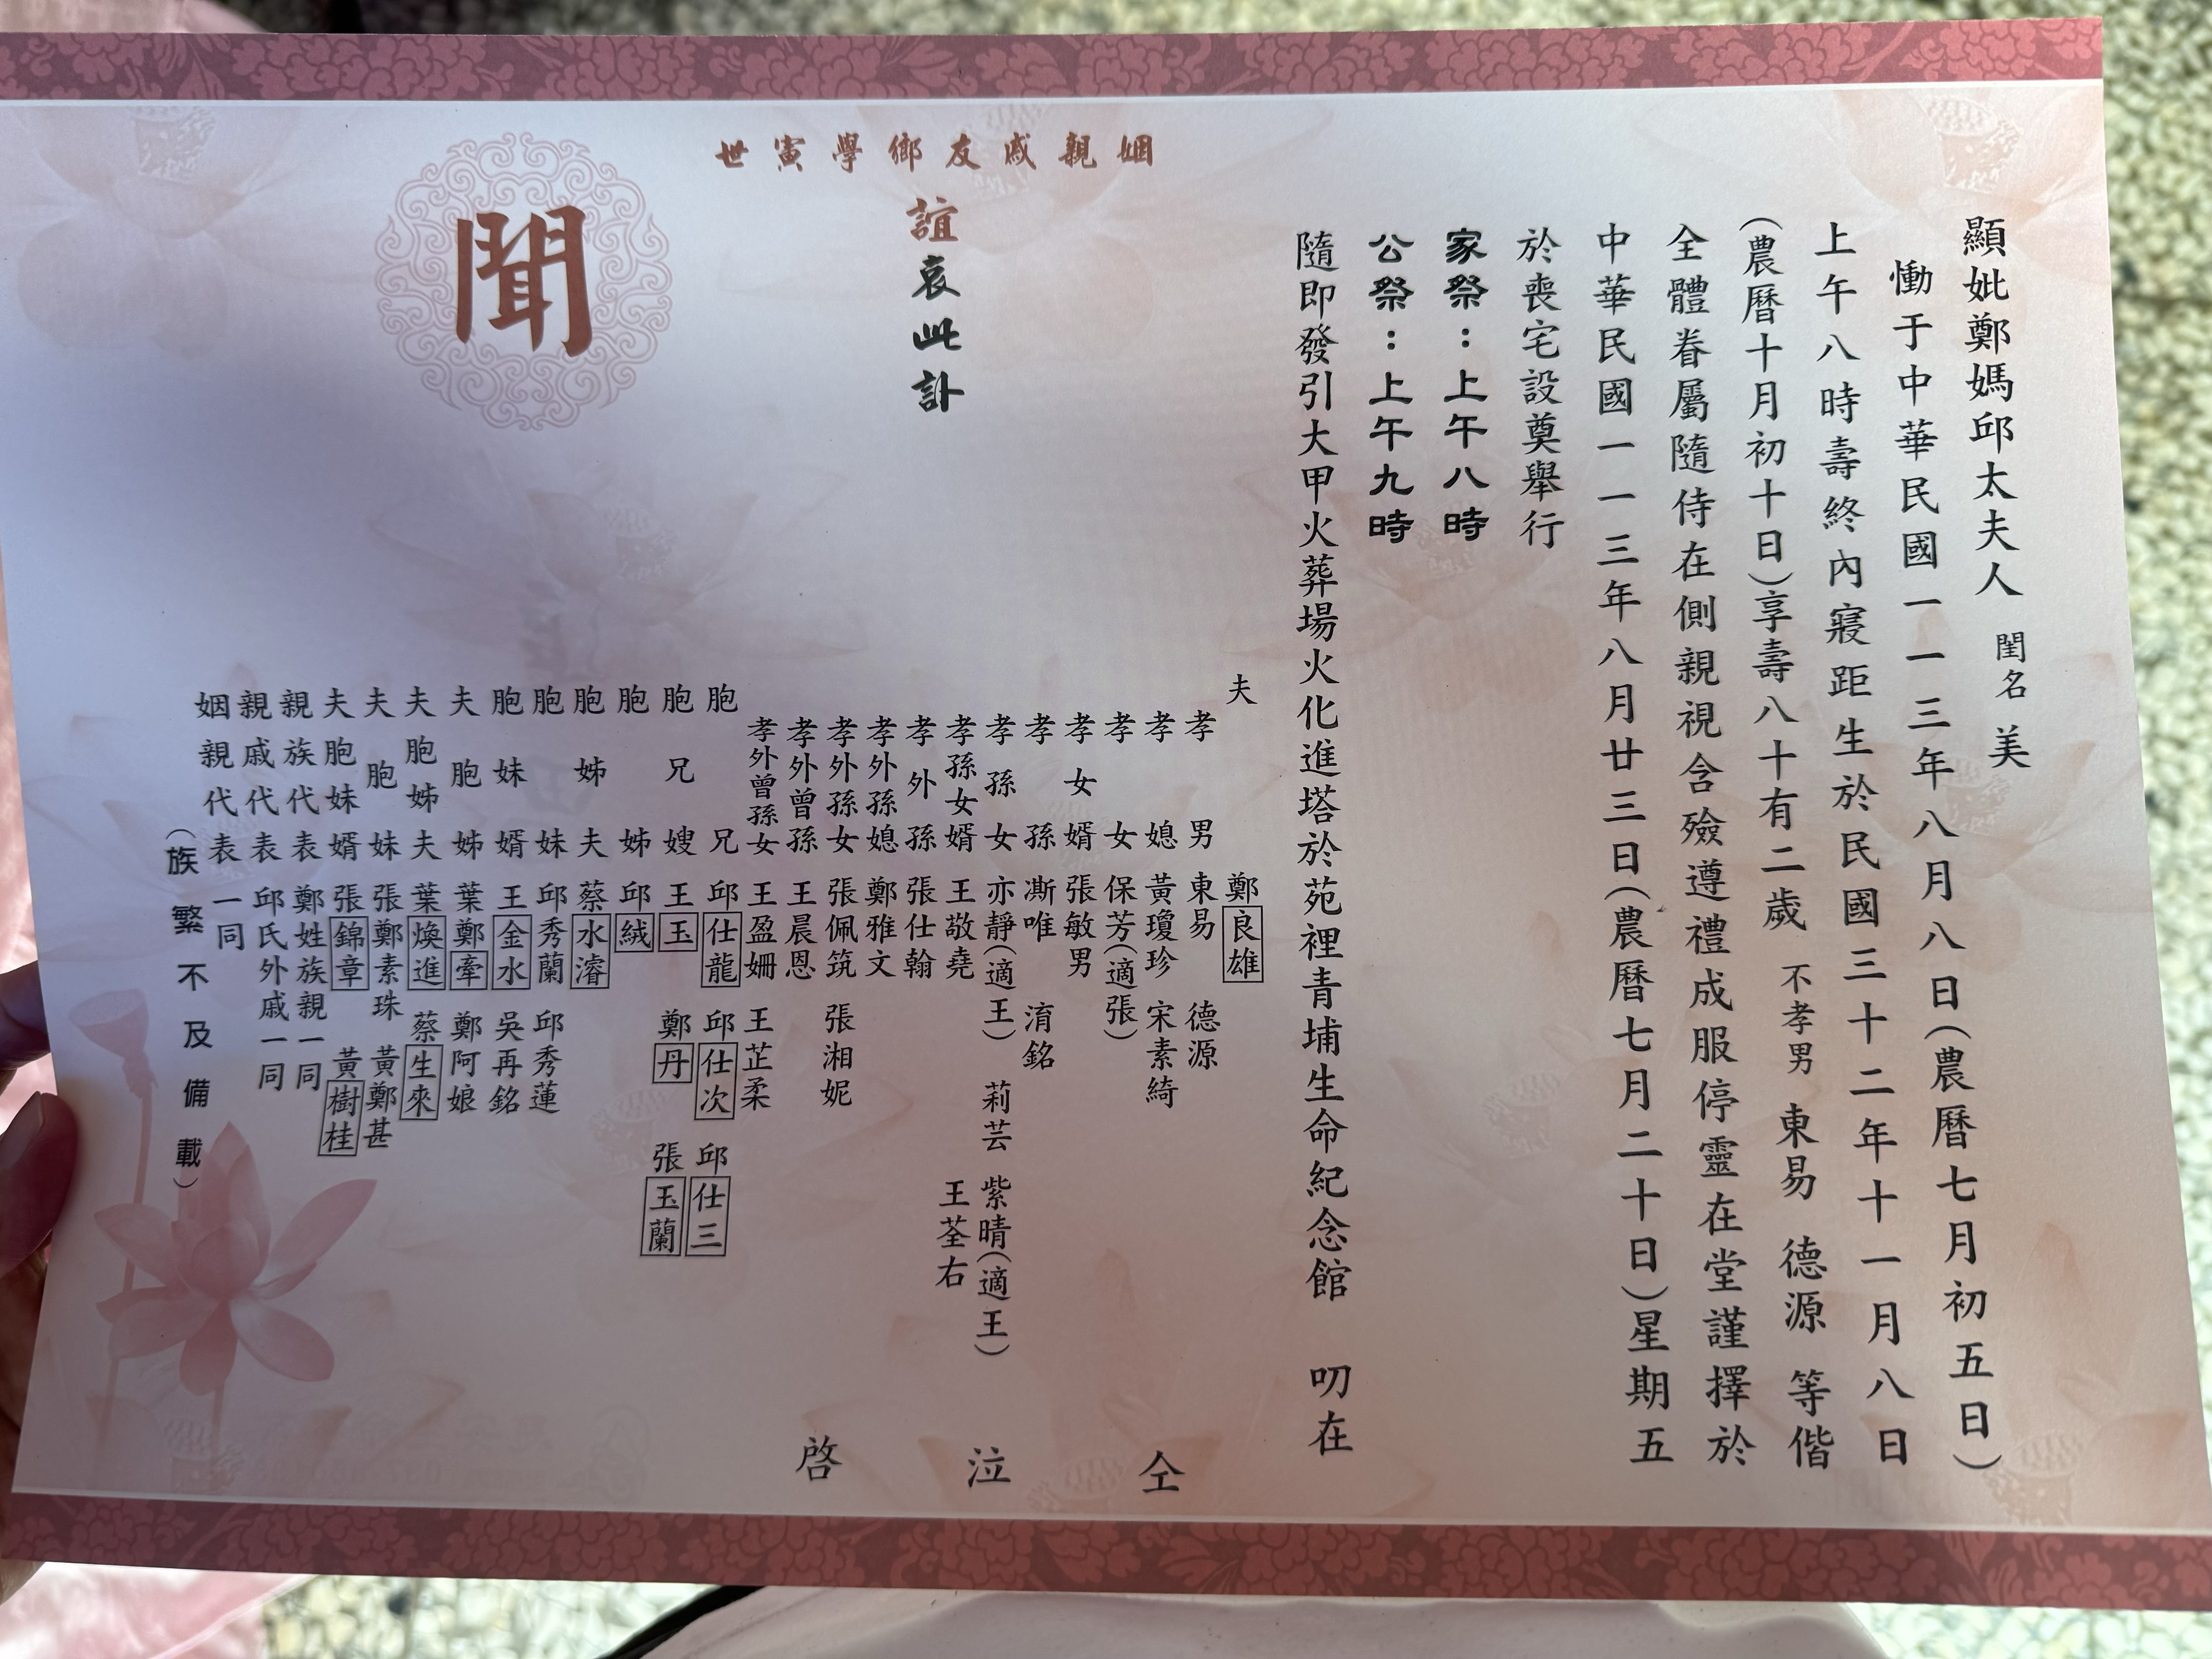 顯妣鄭媽邱太夫人 閨名 美
慟于中華民國一一三年八月八日(農曆七月初五日)
上午八時壽終內寢距生於民國三十二年十一月八日
(農曆十月初十日)享壽八十有二歲 不孝男 東易 德源 等偕
全體眷屬隨侍在側親視含殮遵禮成服停靈在堂謹擇於
中華民國一一三年八月廿三日(農曆七月二十日)星期五
於喪宅設奠舉行
家祭:上午八時
公祭:上午九時
隨即發引大甲火葬場火化進塔於苑裡青埔生命紀念館 叨在
姻親戚友鄉學寅世
誼哀此訃
聞
夫 鄭良雄
孝男 東易 德源
孝媳 黃瓊珍 宋素綺
孝女 保芳(適張)
孝女婿 張敏男
孝孫 凘唯 淯銘
孝孫女 亦靜(適王) 莉芸 紫晴(適王)
孝孫女婿 王敬堯 王荃右
孝外孫 張仕翰
孝外孫媳 鄭雅文
孝外孫女 張佩筑 張湘妮
孝外曾孫 王晨恩
孝外曾孫女 王盈姍 王芷柔
胞兄 邱仕龍 邱仕次 邱仕三
胞兄嫂 王玉 鄭丹 張玉蘭
胞姊 邱絨
胞姊夫 蔡水濬
胞妹 邱秀蘭 邱秀蓮
胞妹婿 王金水 吳再銘
夫胞姊 葉鄭牽 鄭阿娘
夫胞姊夫 葉煥進 蔡生來
夫胞妹 張鄭素珠 黃鄭甚
夫胞妹婿 張錦章 黃樹桂
親族代表 鄭姓族親一同
親戚代表 邱氏外戚一同
姻親代表一同
(族繁不及備載)
仝
泣
啓